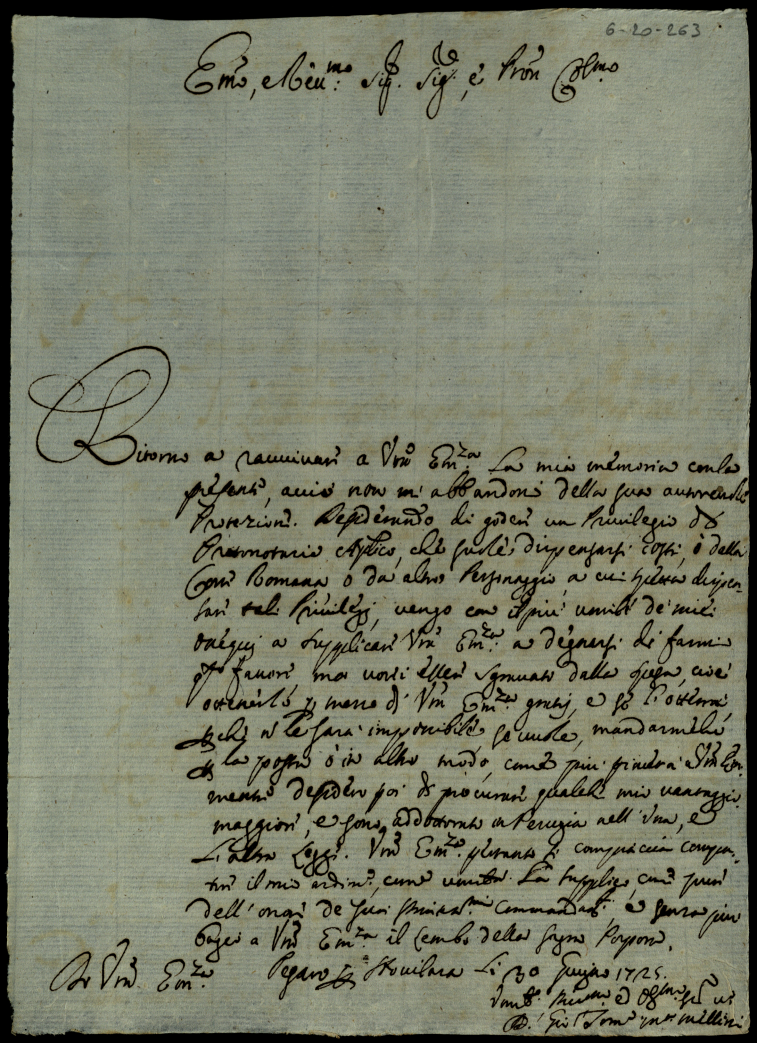 6-20-263
Emo, e Reu.mo Sig. Sig., e Pron Colmo
Ritorno a rauuiuare a Vra Em.za la mia memoria con la
presente, acciò non mi abbandoni della sua autoreuole
Protezione. Desiderando di godere un Priuilegio di
Protonotario Aplico, che suole dispensarsi costì, ò dalla
Corte Romana ò da altro Personaggio, a cui spetta dispen-
sare tali Priuilegi, uengo con il più umile de miei
ossequi a supplicare Vra Em.za a degnarsi di farmi
qto fauore, ma uorrei essere sgrauato dalla spesa, cioè
ottenerlo p mezzo di Vra Em.za gratis, e se l'otterrà,
che nè le sarà impossibile se uuole, mandarmelo
p la posta ò in altro modo, come più piacerà a Vra Em.
mentre desidero poi di procurare qualche mio uantaggio
maggiore, e sono addottorato in Perugia nell'una, e
l'altra Legge. Vra Em.za pertanto si compiaccia compa-
tire il mio ardire, come umilte La supplico, come pure
dell'onore de suoi stimat.mi Commandati, e senza più
bagio a Vra Em.za il Lembo della Sagra Porpora.
Di Vra Em.za Pesaro p Nouilara Li 30 Giugno 1725.